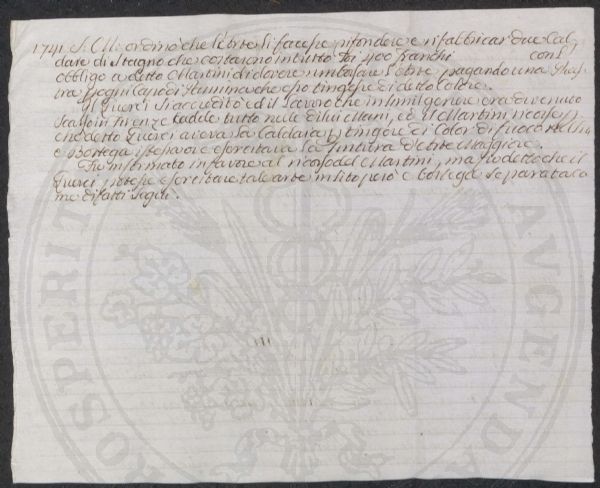 1741. S. A. R. ordinò che l'Arte si facesse rifondere e rifabbricar due Cal
daie di Stagno che costarono in tutto 400 franchi con l'
obbligo a detto Martini di dovere rimborsare l'Arte pagando una
tra per ogni capo di che esso tingesse di detto Colore.
Il Querci si accreditò ed il Lavoro che in simil genere era divenuto
in Firenze cadde tutto nelle di lui Mani, ed il Martini ricorse
che detto Querci aveva la Caldaia p tingere di Color di fuoco nella
e Bottega istessa ove esercitava la Tintura d'Arte Maggiore.
Fu informato in favore al ricorso del Martini, ma fu detto che il
Querci potesse esercitare tale arte in sito però e bottega separata co
me di fatti seguì.
PROSPERIT
AUGENDA